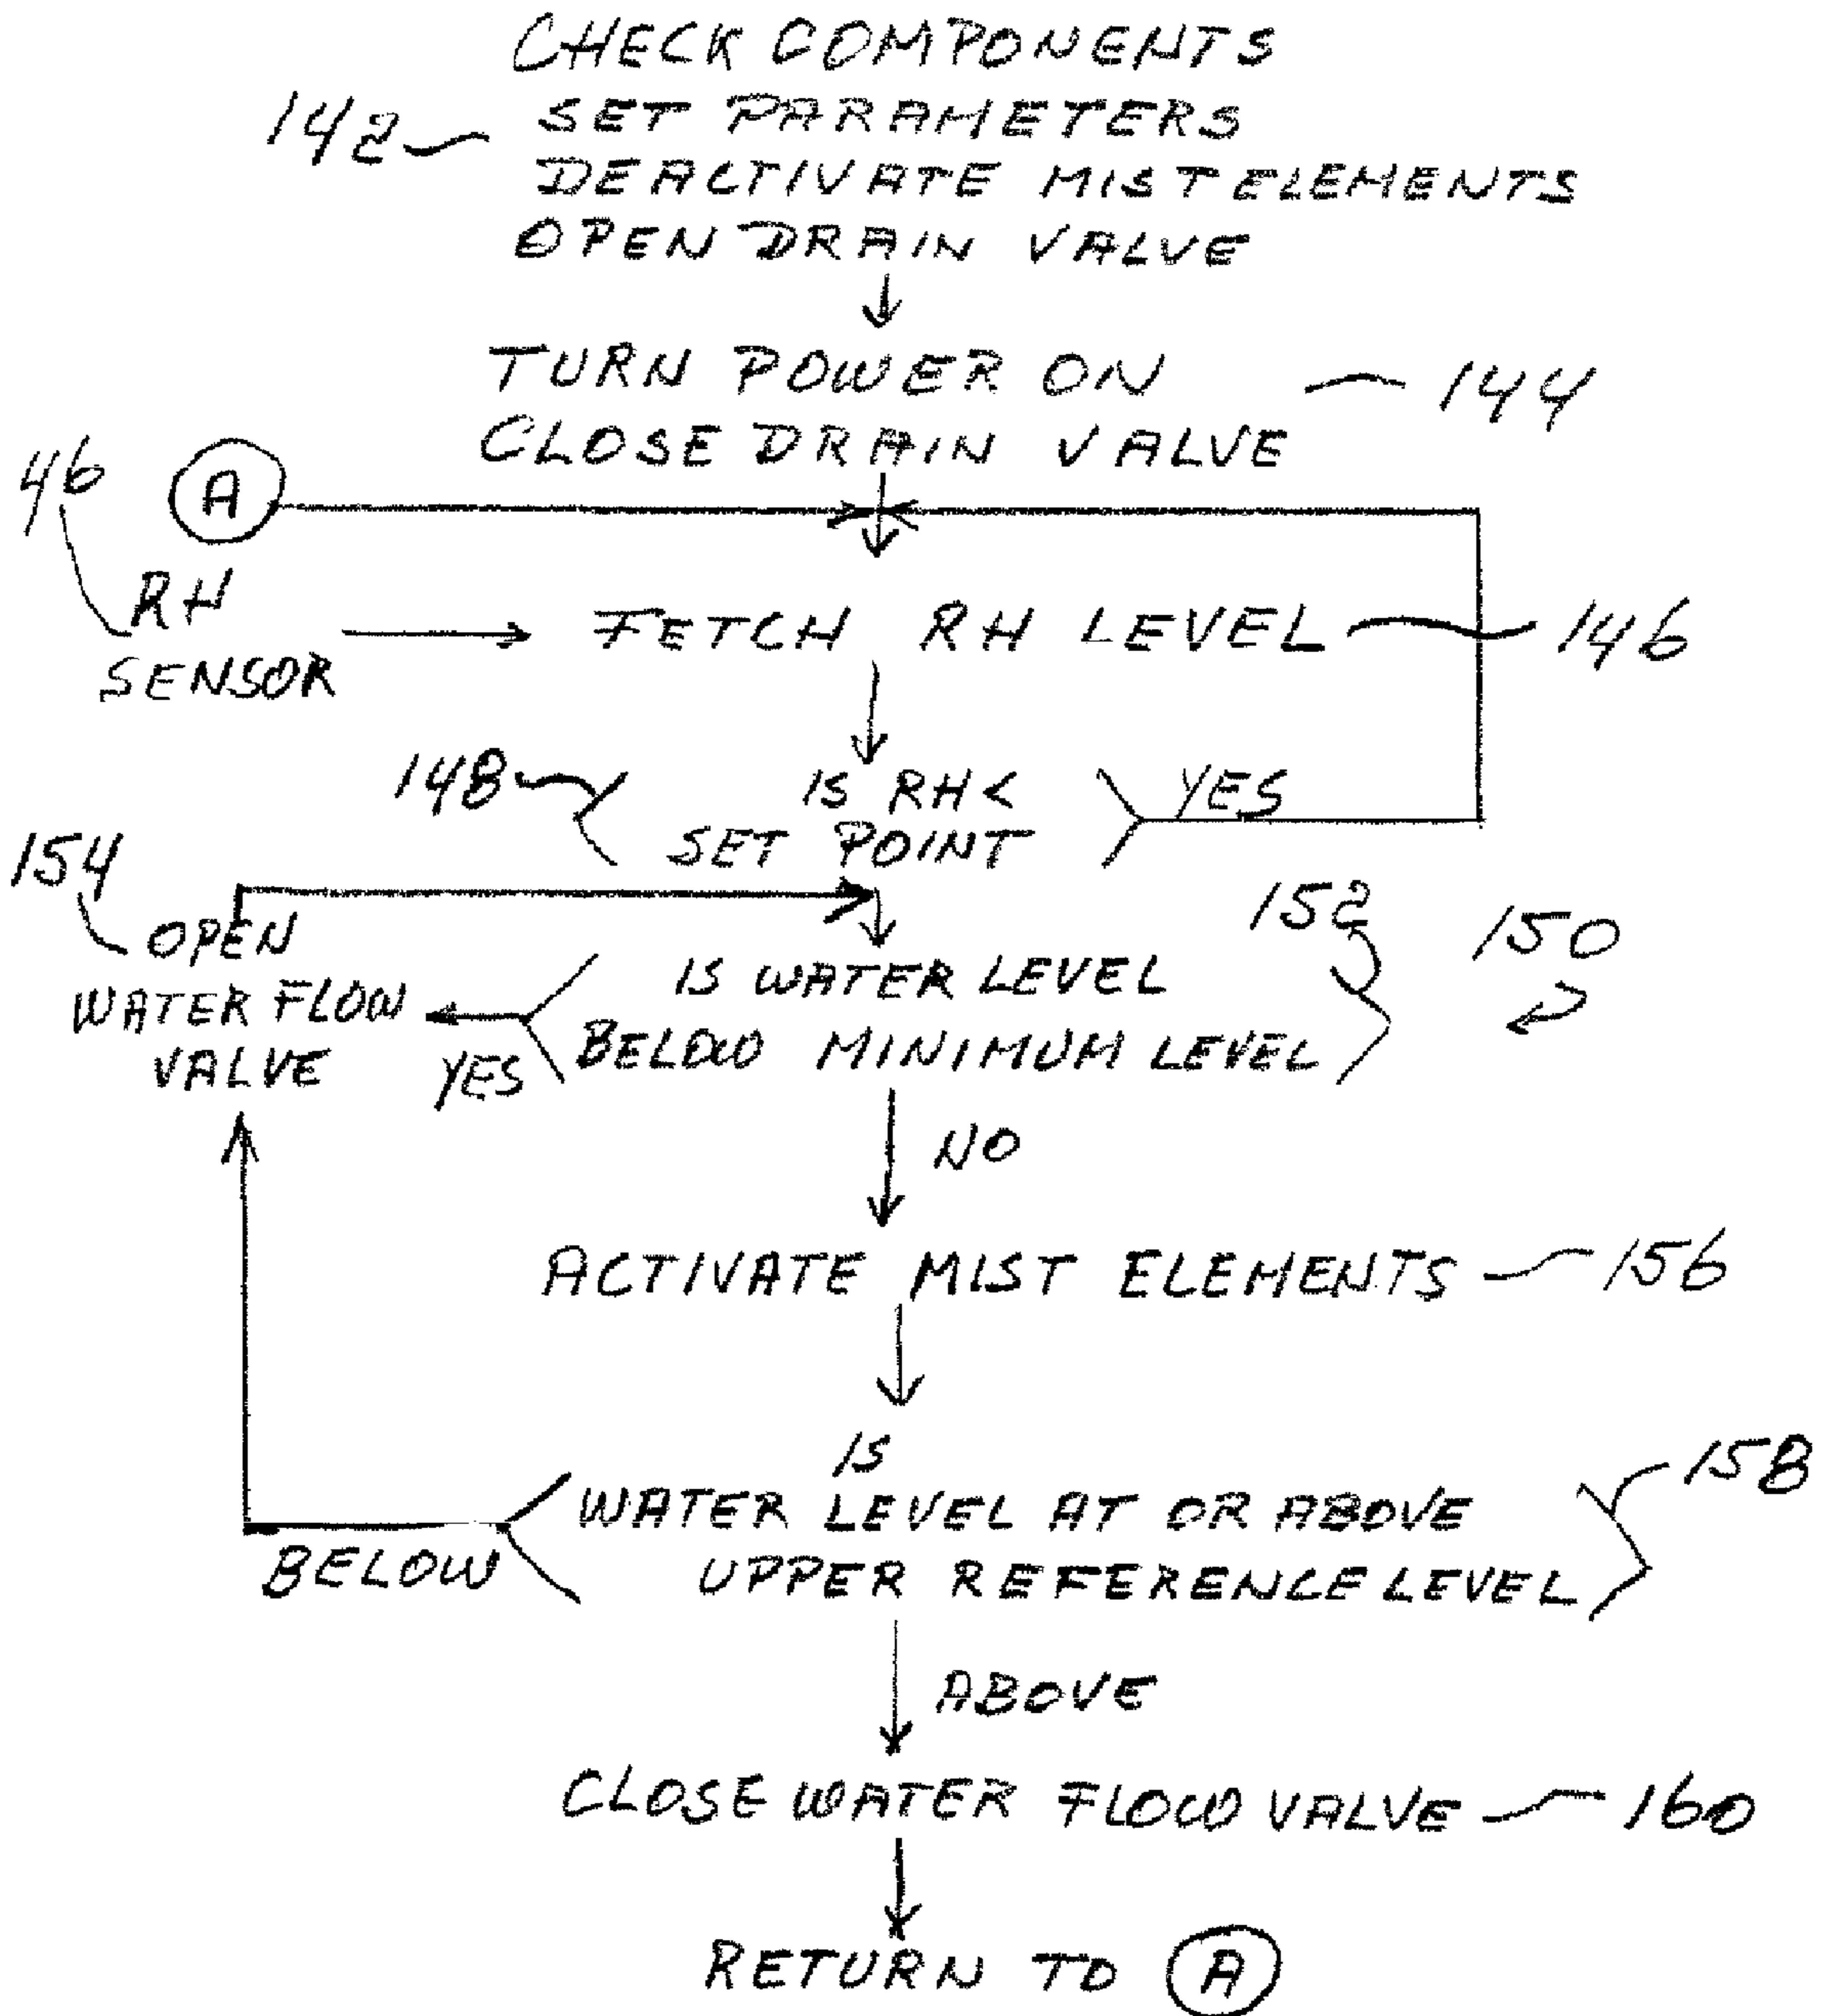 CHECK COMPONENTS
142 SET PARAMETERS
DEACTIVATE MIST ELEMENTS
OPEN DRAIN VALVE
TURN POWER ON 144
CLOSE DRAIN VALVE
46 A
RH
SENSOR
FETCH RH LEVEL 146
148 IS RH < YES
SET POINT
154 OPEN
WATER FLOW
VALVE YES
IS WATER LEVEL 152 150
BELOW MINIMUM LEVEL
NO
ACTIVATE MIST ELEMENTS 156
IS
WATER LEVEL AT OR ABOVE 158
UPPER REFERENCE LEVEL
BELOW
ABOVE
CLOSE WATER FLOW VALVE 160
RETURN TO A